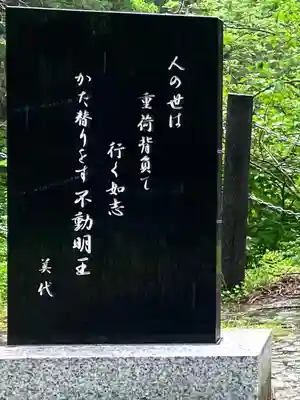 人の世は
重荷背負て
行く如志
かた替りをす不動明王
美代